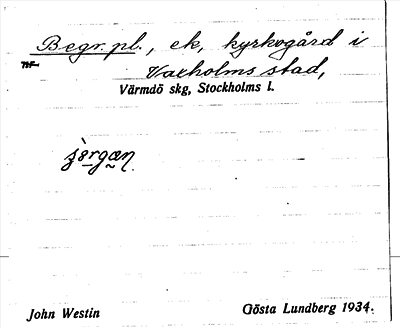 Begr. pl., ek, kyrkogård i
Vaxholms stad,
Värmdö skg, Stockholms l.
John Westin
Gösta Lundberg 1934.